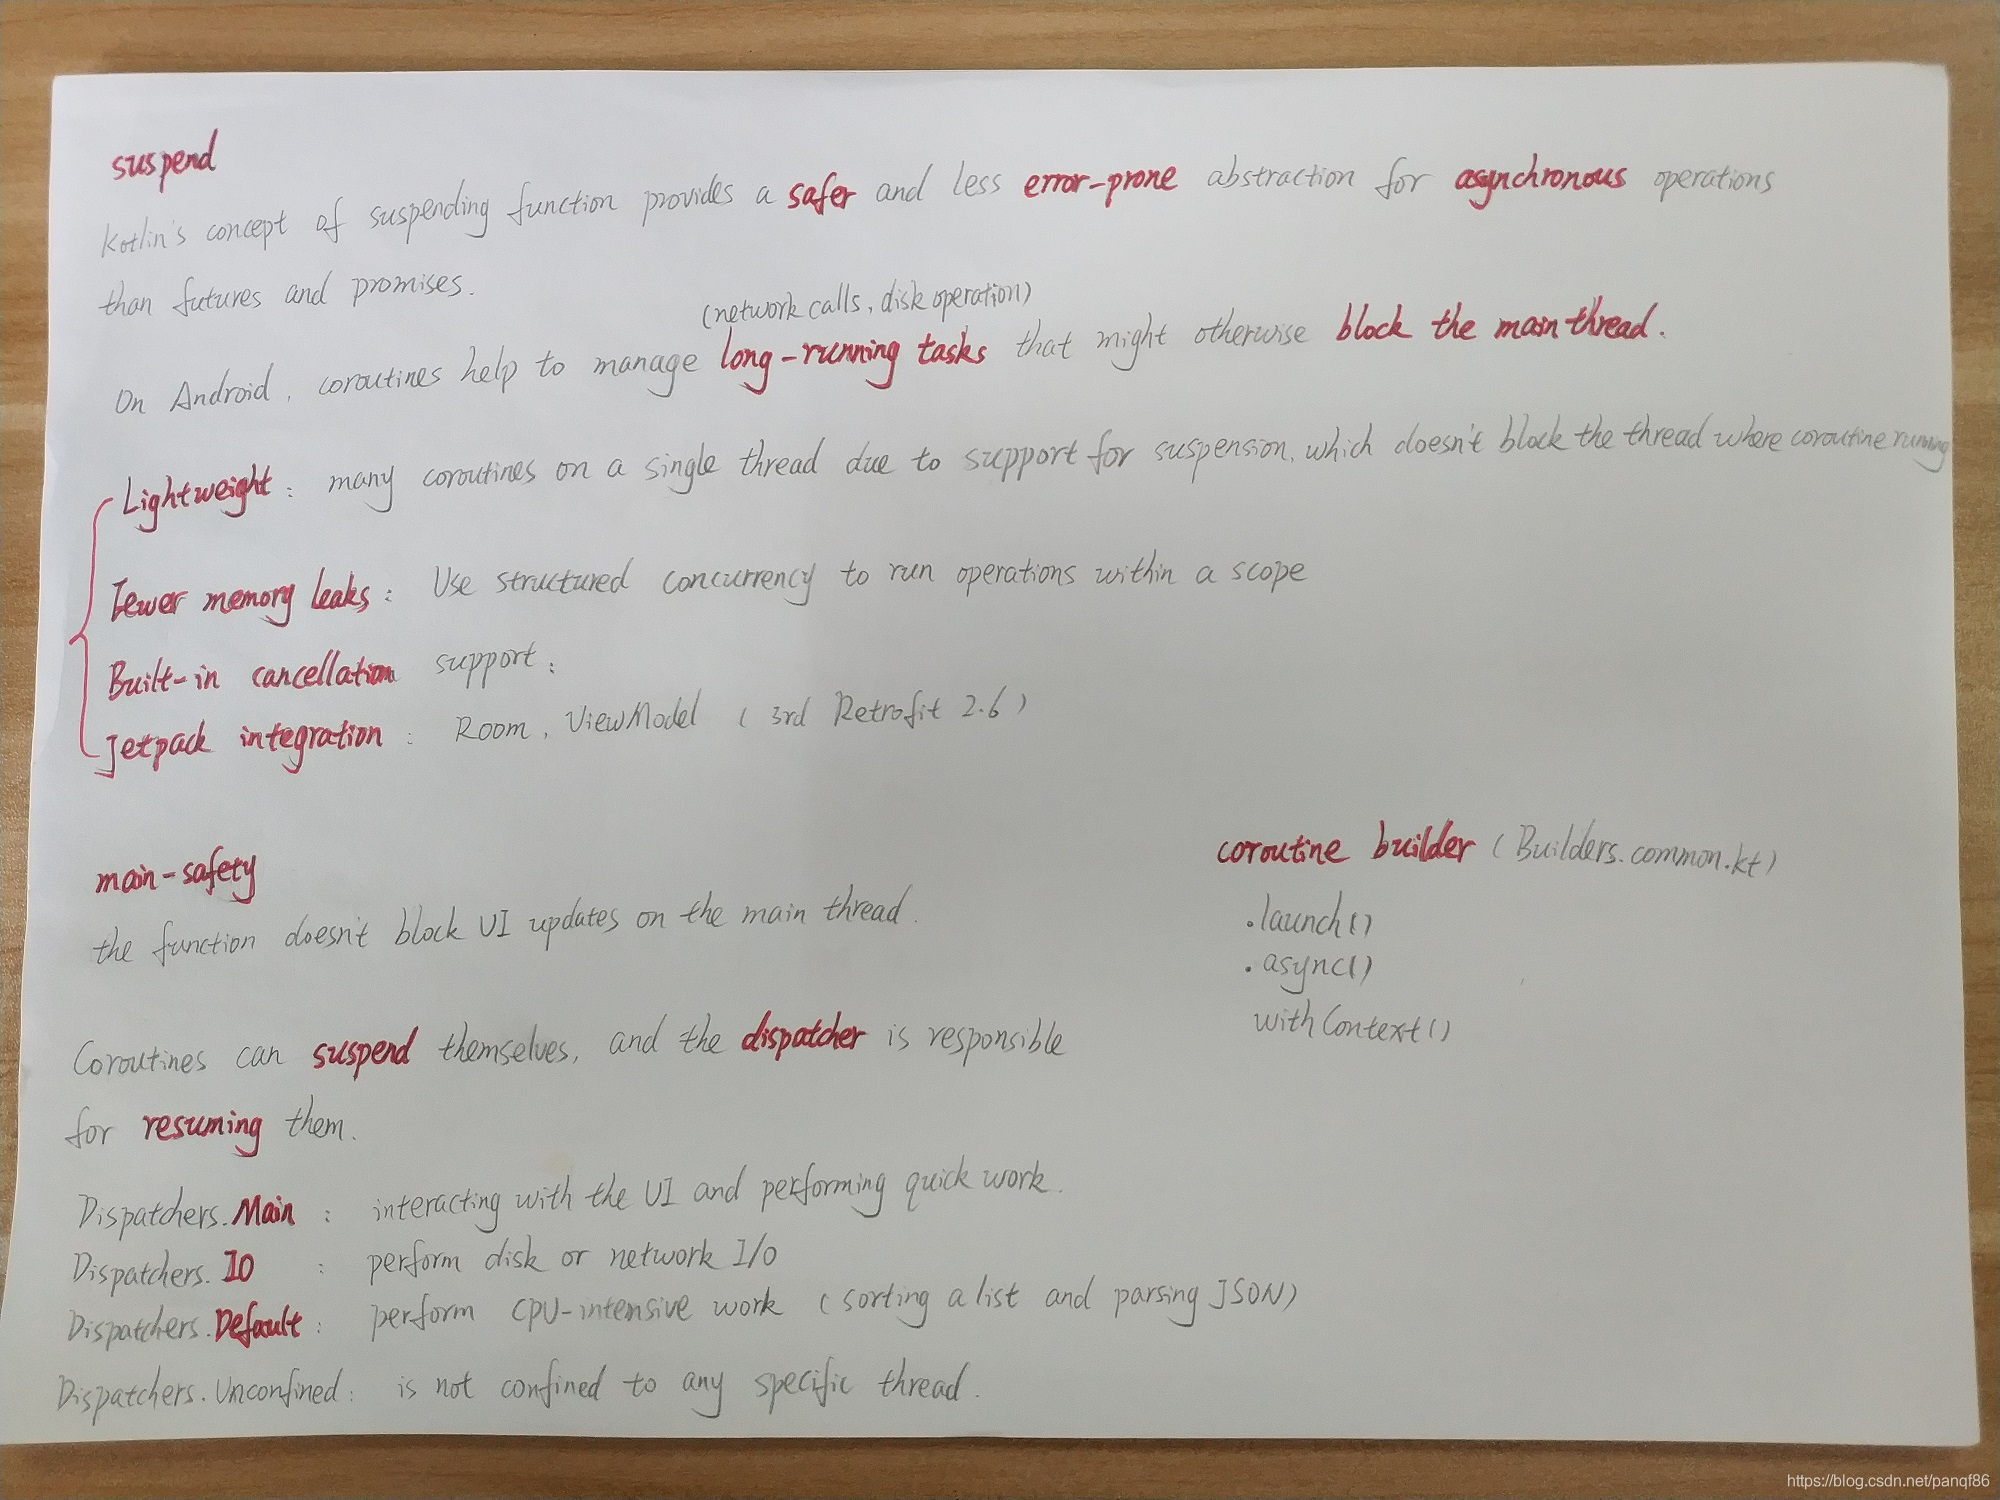 suspend
Kotlin's concept of suspending function provides a safer and less error-prone abstraction for asynchronous operations
than futures and promises.
(network calls, disk operation)
On Android, coroutines help to manage long-running tasks that might otherwise block the main thread.
Lightweight: many coroutines on a single thread due to support for suspension, which doesn't block the thread where coroutine running
Fewer memory leaks: Use structured concurrency to run operations within a scope
Built-in cancellation support:
Jetpack integration: Room, ViewModel (3rd Retrofit 2.6)
main-safety
the function doesn't block UI updates on the main thread.
Coroutines can suspend themselves, and the dispatcher is responsible
for resuming them.
Dispatchers.Main : interacting with the UI and performing quick work.
Dispatchers.IO : perform disk or network I/O
Dispatchers.Default: perform CPU-intensive work (sorting a list and parsing JSON)
Dispatchers.Unconfined: is not confined to any specific thread.
coroutine builder (Builders.common.kt)
.launch()
.async()
withContext()
https://blog.csdn.net/panqf86